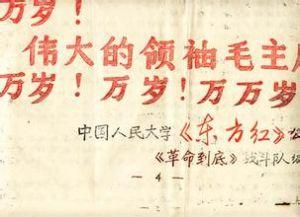 万岁！
伟大的领袖毛主
万岁！万岁！万万岁
中国人民大学《东方红》公
《革命到底》战斗队
— 4 —